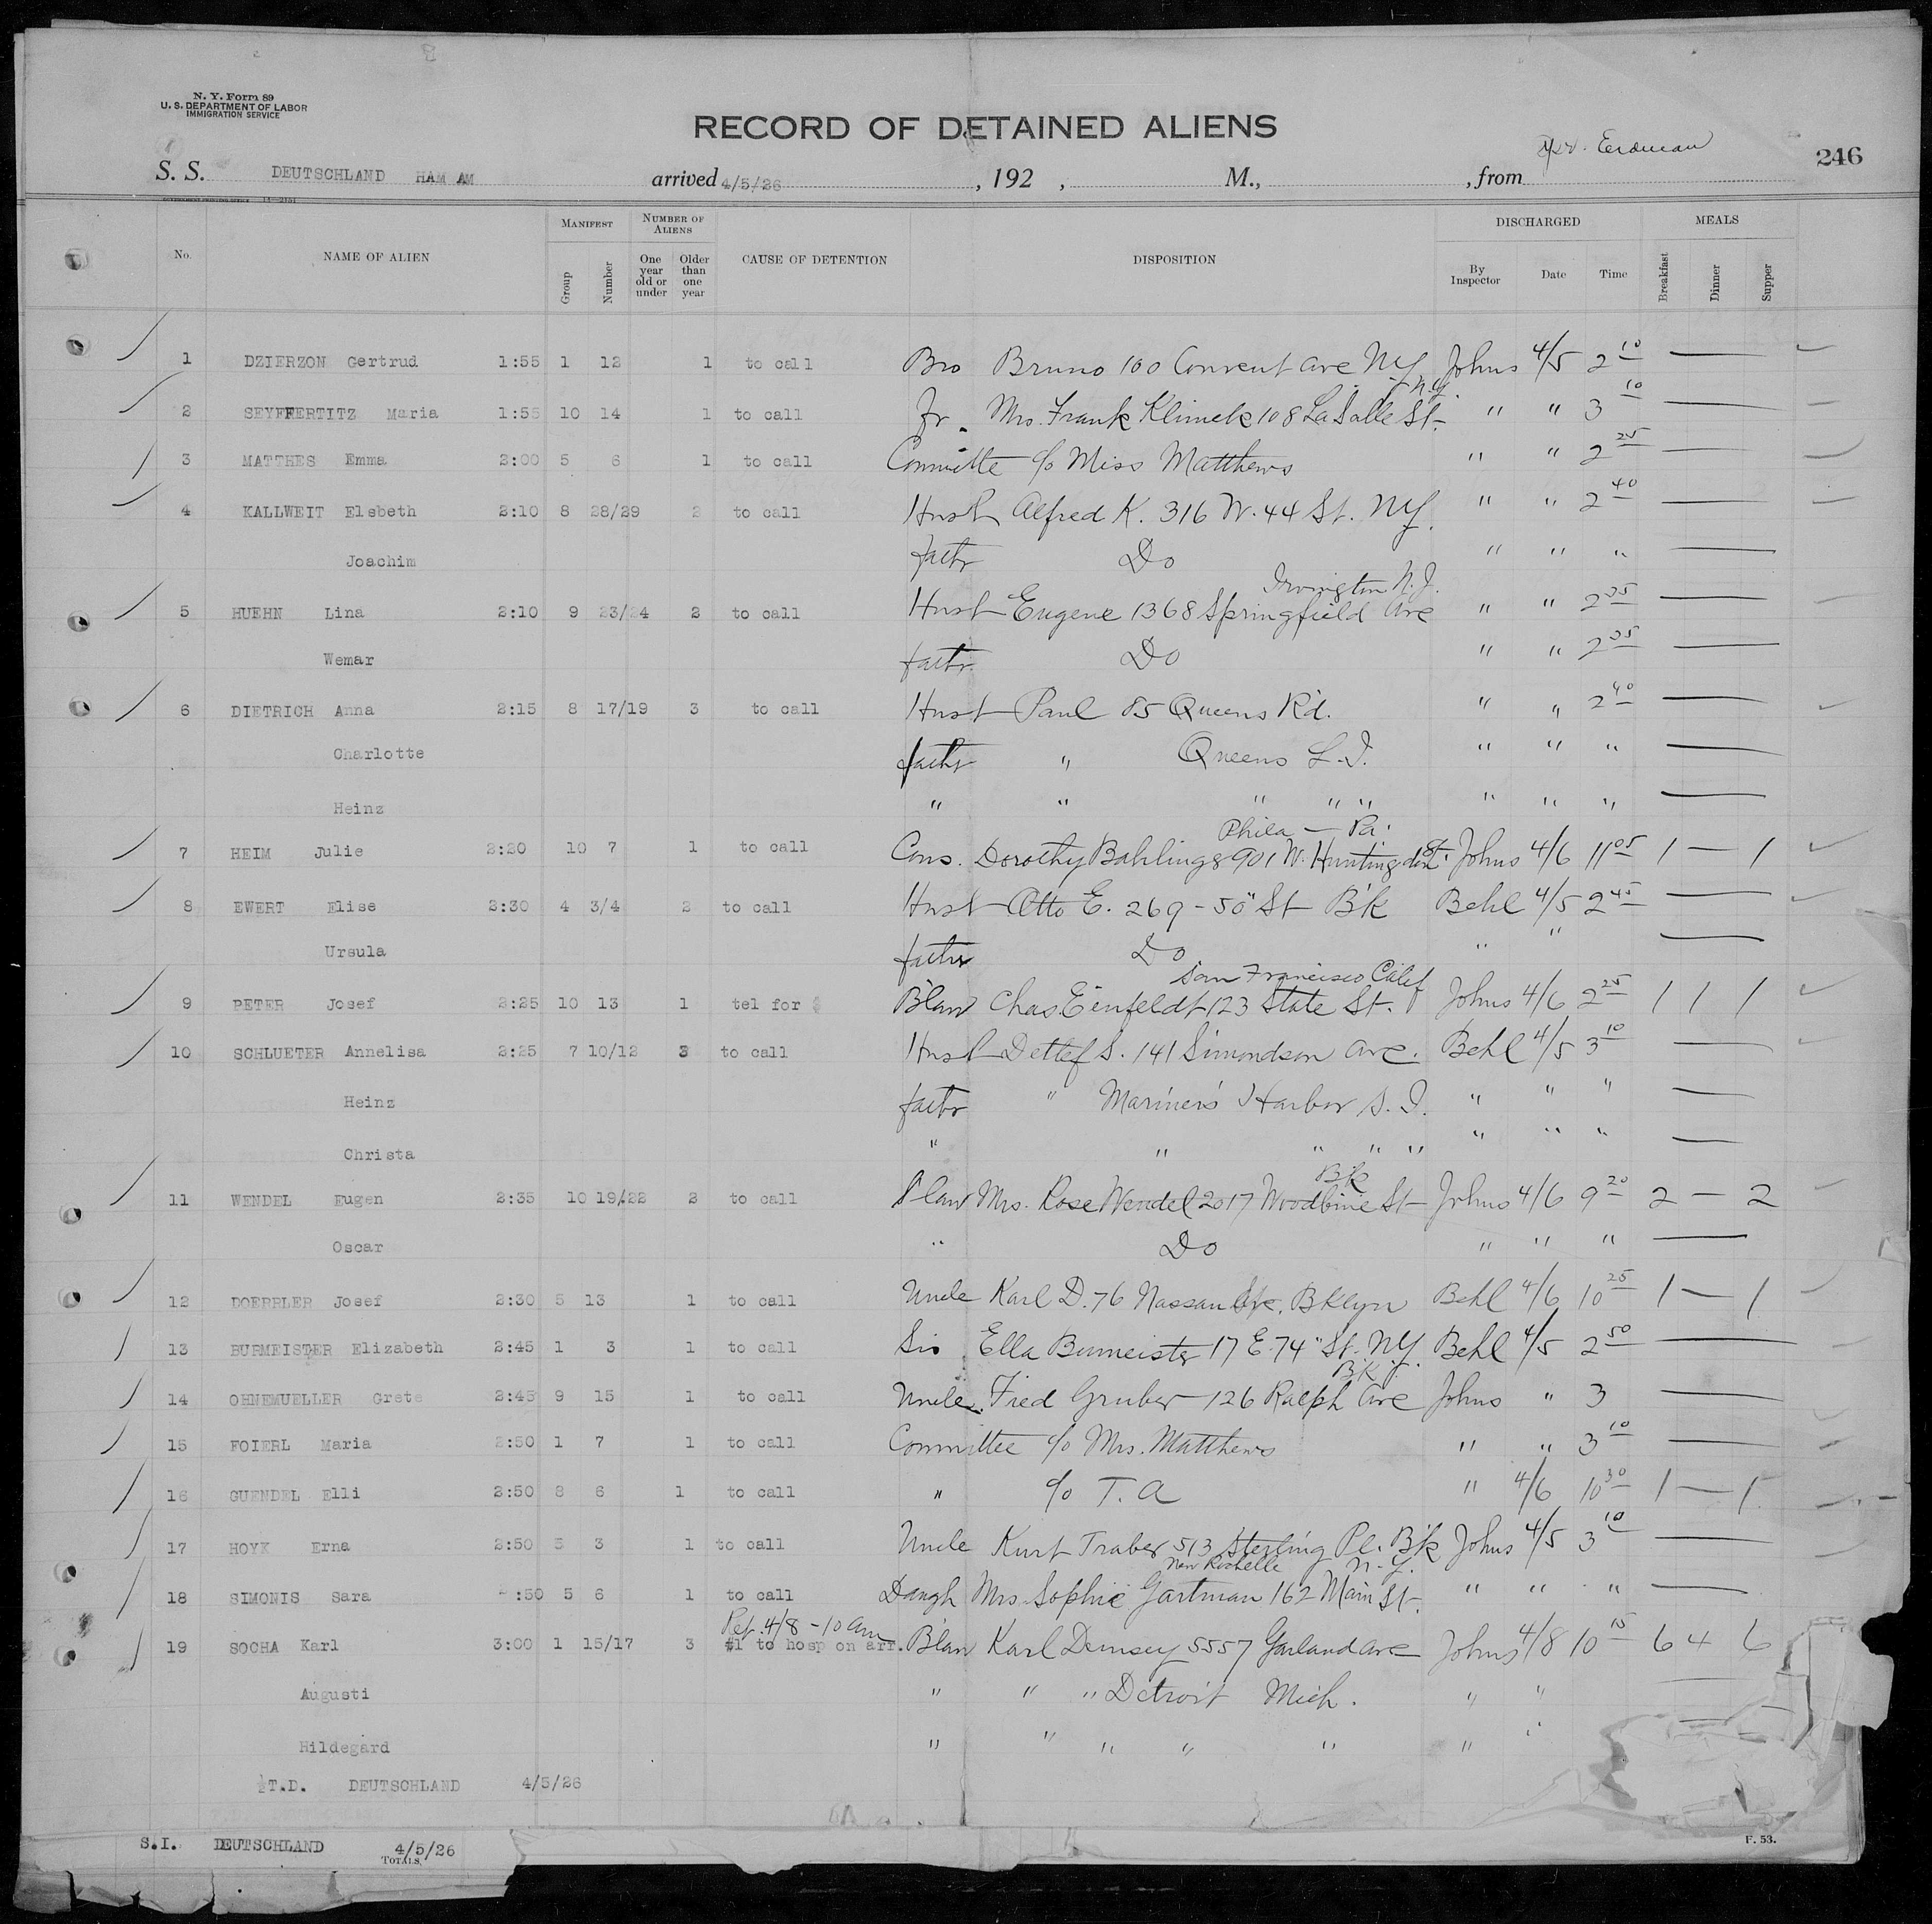 N. Y. Form 89
U. S. DEPARTMENT OF LABOR
IMMIGRATION SERVICE
RECORD OF DETAINED ALIENS
246
S. S. DEUTSCHLAND HAM AM arrived 4/5/26, 192 , M., , from Erdman
No. NAME OF ALIEN MANIFEST Group Number NUMBER OF ALIENS One year old or under Older than one year CAUSE OF DETENTION DISPOSITION DISCHARGED By Inspector Date Time MEALS Breakfast Dinner Supper
1 DZIERZON Gertrud 1:55 1 12 1 to call Bro Bruno 100 Convent Ave NY Johns 4/5 2 10 —
N.Y.
2 SEYFFERTITZ Maria 1:55 10 14 1 to call Fr. Mrs. Frank Klimek 108 LaSalle St. " " 3 10 —
3 MATTHES Emma 2:00 5 6 1 to call Committe c/o Miss Matthews " " 2 25 —
4 KALLWEIT Elsbeth 2:10 8 28/29 2 to call Husb Alfred K. 316 W. 44 St. NY. " " 2 40 —
Joachim fathr Do " " " —
Irvington N.J.
5 HUEHN Lina 2:10 9 23/24 2 to call Husb Eugene 1368 Springfield Ave " " 2 35 —
Wemar fathr. Do " " 2 35 —
6 DIETRICH Anna 2:15 8 17/19 3 to call Husb Paul 85 Queens Rd. " " 2 40 —
Charlotte fathr " Queens L.I. " " " —
Heinz " " " " " " " " —
Phila — Pa.
7 HEIM Julie 2:20 10 7 1 to call Cons. Dorothy W. Huntingdon St. Johns 4/6 11 05 1 — 1
8 EWERT Elise 2:30 4 3/4 2 to call Husb Otto E. 269 - 50" St B'k Behl 4/5 2 45 —
Ursula fathr Do " " —
San Francisco Calif
9 PETER Josef 2:25 10 13 1 tel for $ B'law Chas. Eienfeldt 123 State St. Johns 4/6 2 25 1 1 1
10 SCHLUETER Annelisa 2:25 7 10/12 3 to call Husb Detlef S. 141 Simondson Ave. Behl 4/5 3 10 —
Heinz fathr " Mariners Harbor S.I. " " " —
Christa " " " " " " " " —
B'k
11 WENDEL Eugen 2:35 10 19/22 2 to call S'law Mrs. Rose Wendel 2017 Woodbine St Johns 4/6 9 20 2 — 2
Oscar " Do " " " —
12 DOERPLER Josef 2:30 5 13 1 to call Uncle Karl D. 76 Nassau Ave. Bklyn Behl 4/6 10 25 1 — 1
13 BURMEISTER Elizabeth 2:45 1 3 1 to call Sis Ella Burmeister 17 E. 74" St. NY. Behl 4/5 2 50 —
B'k
14 OHNEMUELLER Grete 2:45 9 15 1 to call Uncle Fred Gruber 126 Ralph Ave Johns " 3 —
15 FOIERL Maria 2:50 1 7 1 to call Committee c/o Mrs. Matthews " " 3 10 —
16 GUENDEL Elli 2:50 8 6 1 to call " c/o T. A " 4/6 10 30 1 — 1
17 HOYK Erna 2:50 5 3 1 to call Uncle Kurt Traber 513 Sterling Pl. B'k Johns 4/5 3 10 —
New Rochelle N.Y.
18 SIMONIS Sara :50 5 6 1 to call Daugh Mrs. Sophie Gartman 162 Main St. " " " —
Ret. 4/8 - 10 am
19 SOCHA Karl 3:00 1 15/17 3 #1 to hosp on arr. B'law Karl Demsey 5557 Garland Ave Johns 4/8 10 15 6 4 6
Augusti " " " Detroit Mich. " " —
Hildegard " " " " " " "
T.D. DEUTSCHLAND 4/5/26
S.I. DEUTSCHLAND 4/5/26
TOTALS,
F. 53.